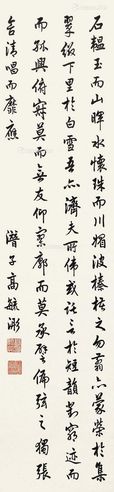 石韞玉而山暉水懷珠而川媚彼榛楛之勿翦亦蒙榮於集
翠綴下里於白雪吾亦濟夫所偉或託言於短韻對窮跡而
而孤興俯寂寞而無友仰寥廓而莫承譬偏弦之獨張
含清唱而靡應
潛子高毓浵